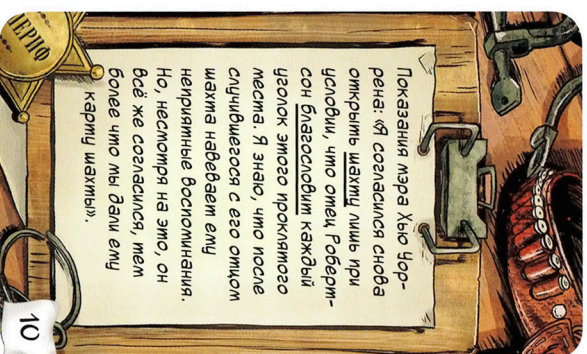 Показания мэра Хью Уор-
рена: «Я согласился снова
открыть шахту лишь при
условии, что отец Роберт-
сон благословит каждый
уголок этого проклятого
места. Я знаю, что после
случившегося с его отцом
шахта навевает ему
неприятные воспоминания.
Но, несмотря на это, он
всё же согласился, тем
более что мы дали ему
карту шахты».
ШЕРИФ
10